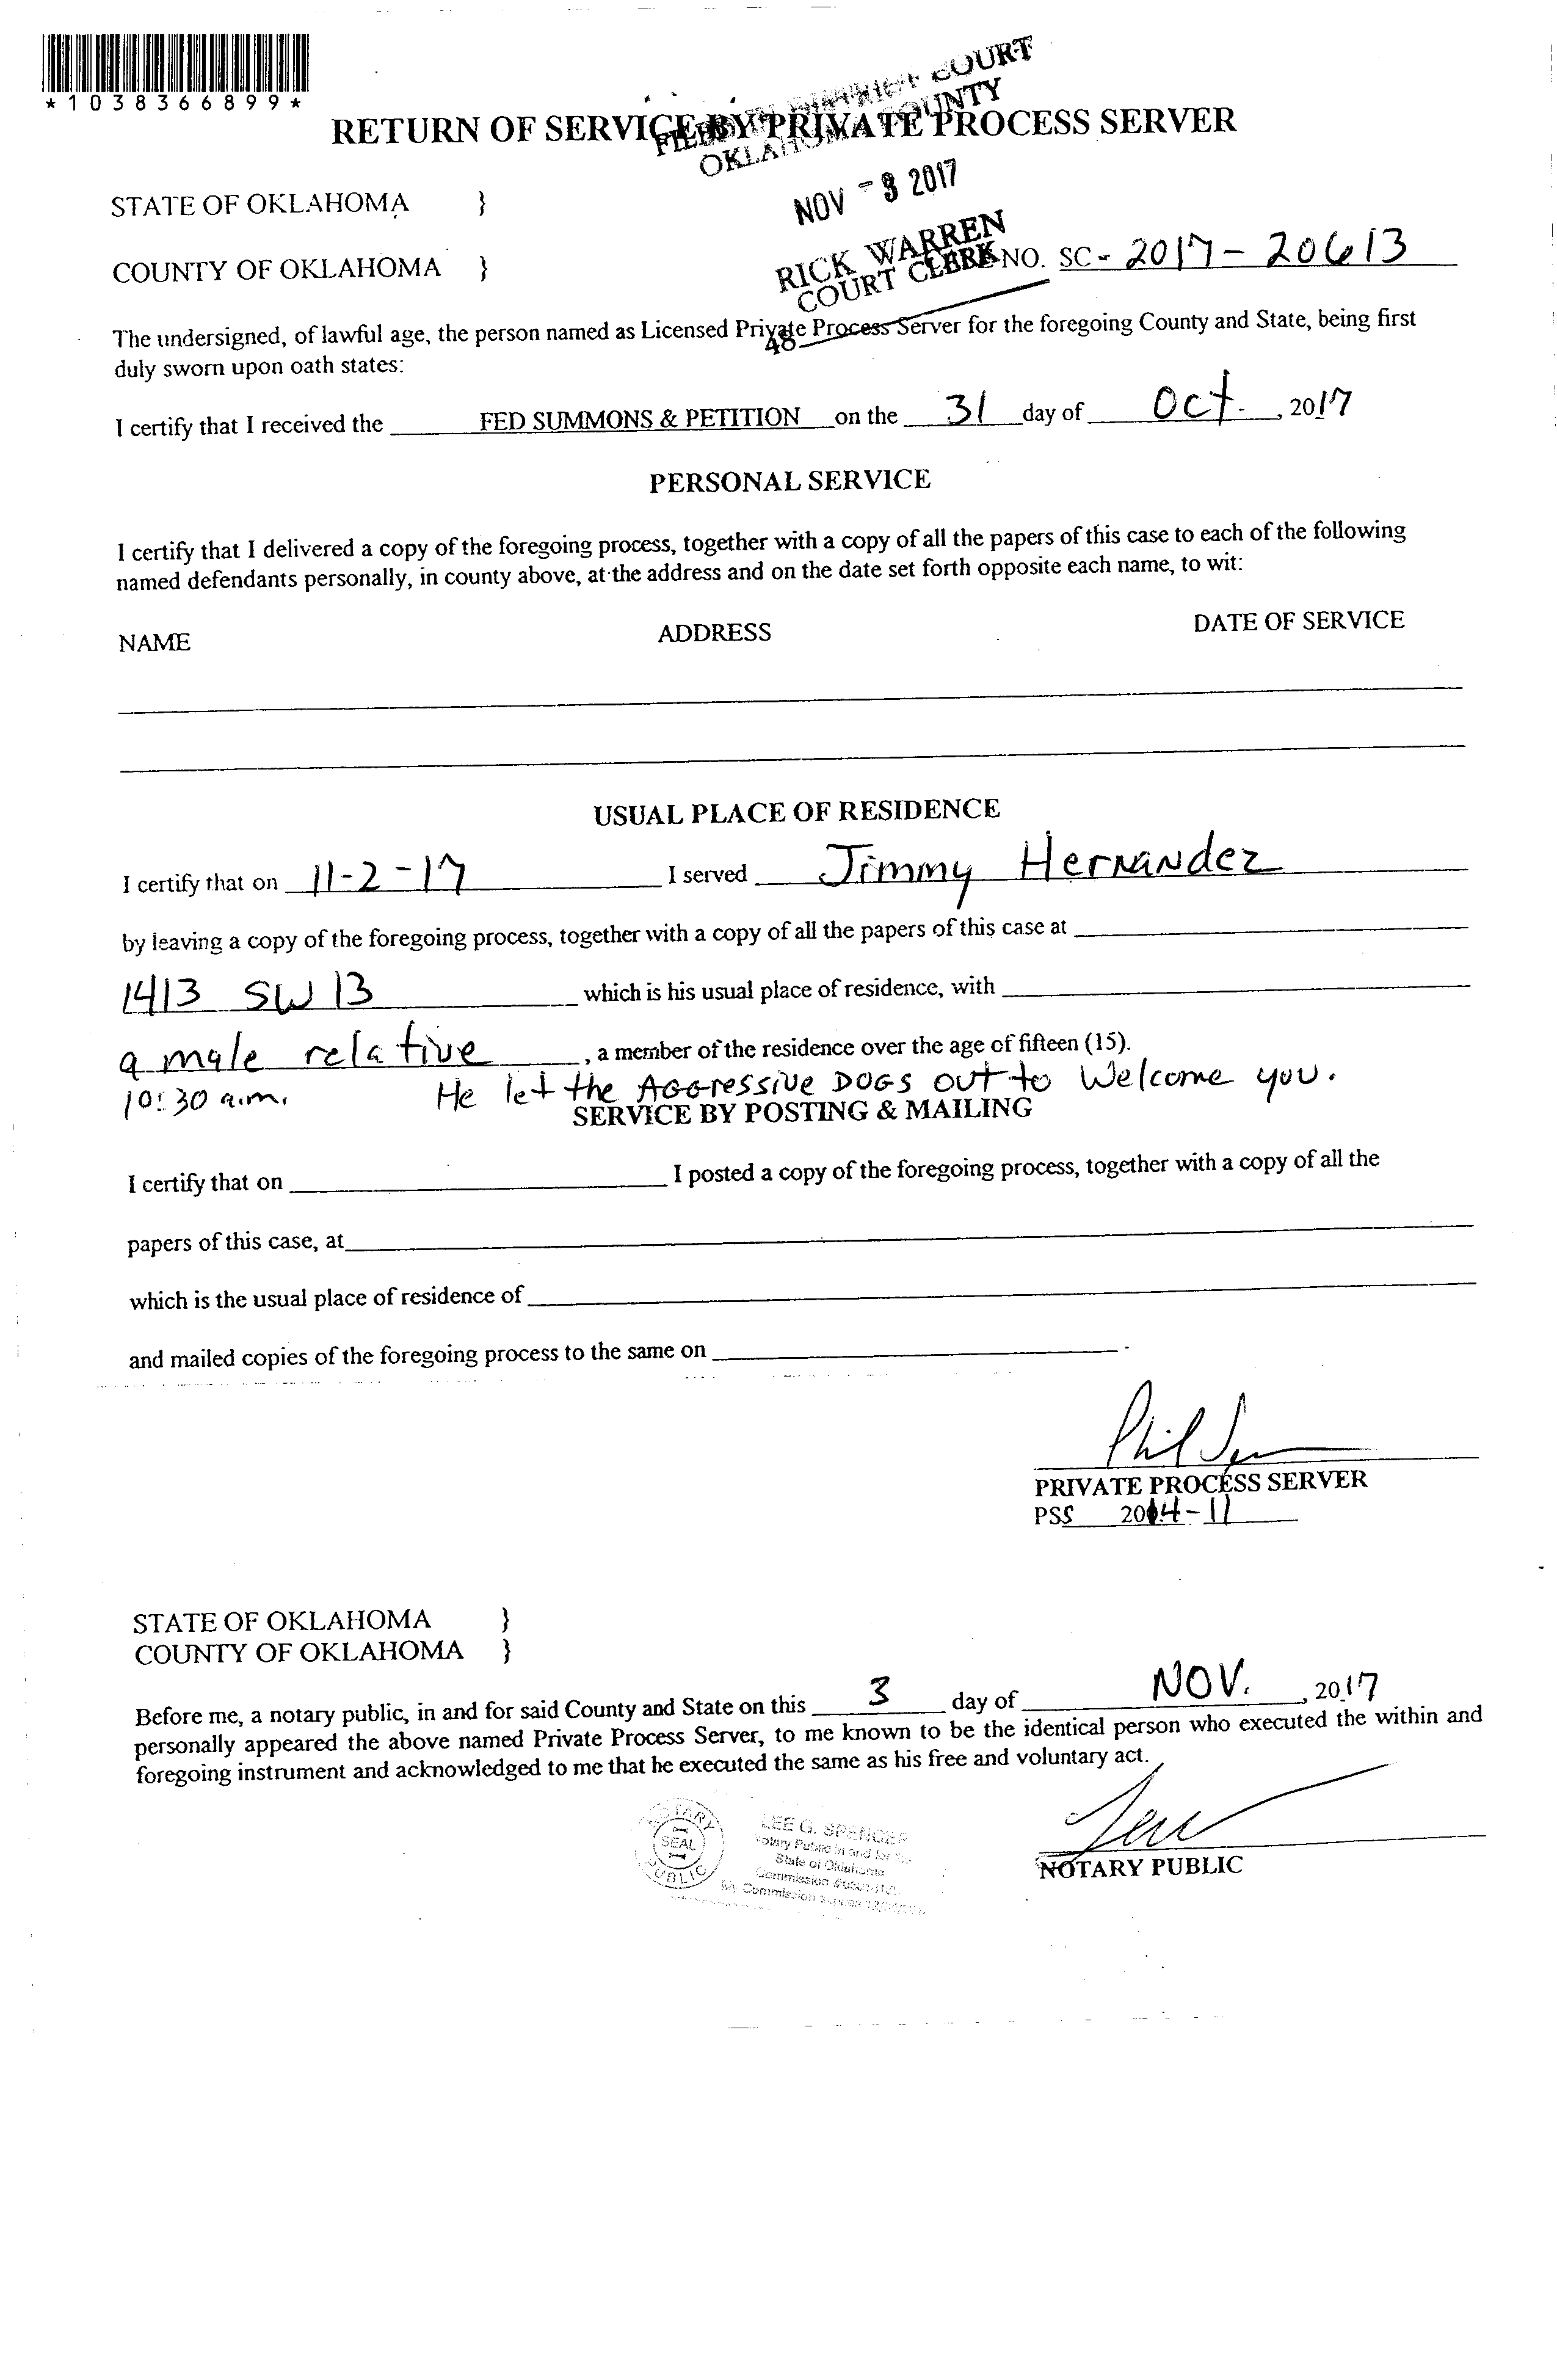 *1038366899*
COURT
COUNTY
RETURN OF SERVICE BY PRIVATE PROCESS SERVER
OKLAHOMA
NOV - 3 2017
STATE OF OKLAHOMA }
RICK WARREN
COURT CLERK
COUNTY OF OKLAHOMA } NO. SC - 2017 - 20613
The undersigned, of lawful age, the person named as Licensed Private Process Server for the foregoing County and State, being first
48
duly sworn upon oath states:
I certify that I received the FED SUMMONS & PETITION on the 31 day of Oct. , 2017
PERSONAL SERVICE
I certify that I delivered a copy of the foregoing process, together with a copy of all the papers of this case to each of the following
named defendants personally, in county above, at the address and on the date set forth opposite each name, to wit:
NAME ADDRESS DATE OF SERVICE
USUAL PLACE OF RESIDENCE
I certify that on 11-2-17 I served Jimmy Hernandez
by leaving a copy of the foregoing process, together with a copy of all the papers of this case at
1413 SW 13 which is his usual place of residence, with
a male relative , a member of the residence over the age of fifteen (15).
10:30 a.m. He let the Aggressive DOGS out to Welcome you.
SERVICE BY POSTING & MAILING
I certify that on I posted a copy of the foregoing process, together with a copy of all the
papers of this case, at
which is the usual place of residence of
and mailed copies of the foregoing process to the same on .
PRIVATE PROCESS SERVER
PSS 2014-11
STATE OF OKLAHOMA }
COUNTY OF OKLAHOMA }
Before me, a notary public, in and for said County and State on this 3 day of NOV. , 2017
personally appeared the above named Private Process Server, to me known to be the identical person who executed the within and
foregoing instrument and acknowledged to me that he executed the same as his free and voluntary act.
NOTARY PUBLIC
SEAL
LEE G. SPENCER
Notary Public in and for the
State of Oklahoma
Commission
My Commission expires
NOTARY PUBLIC